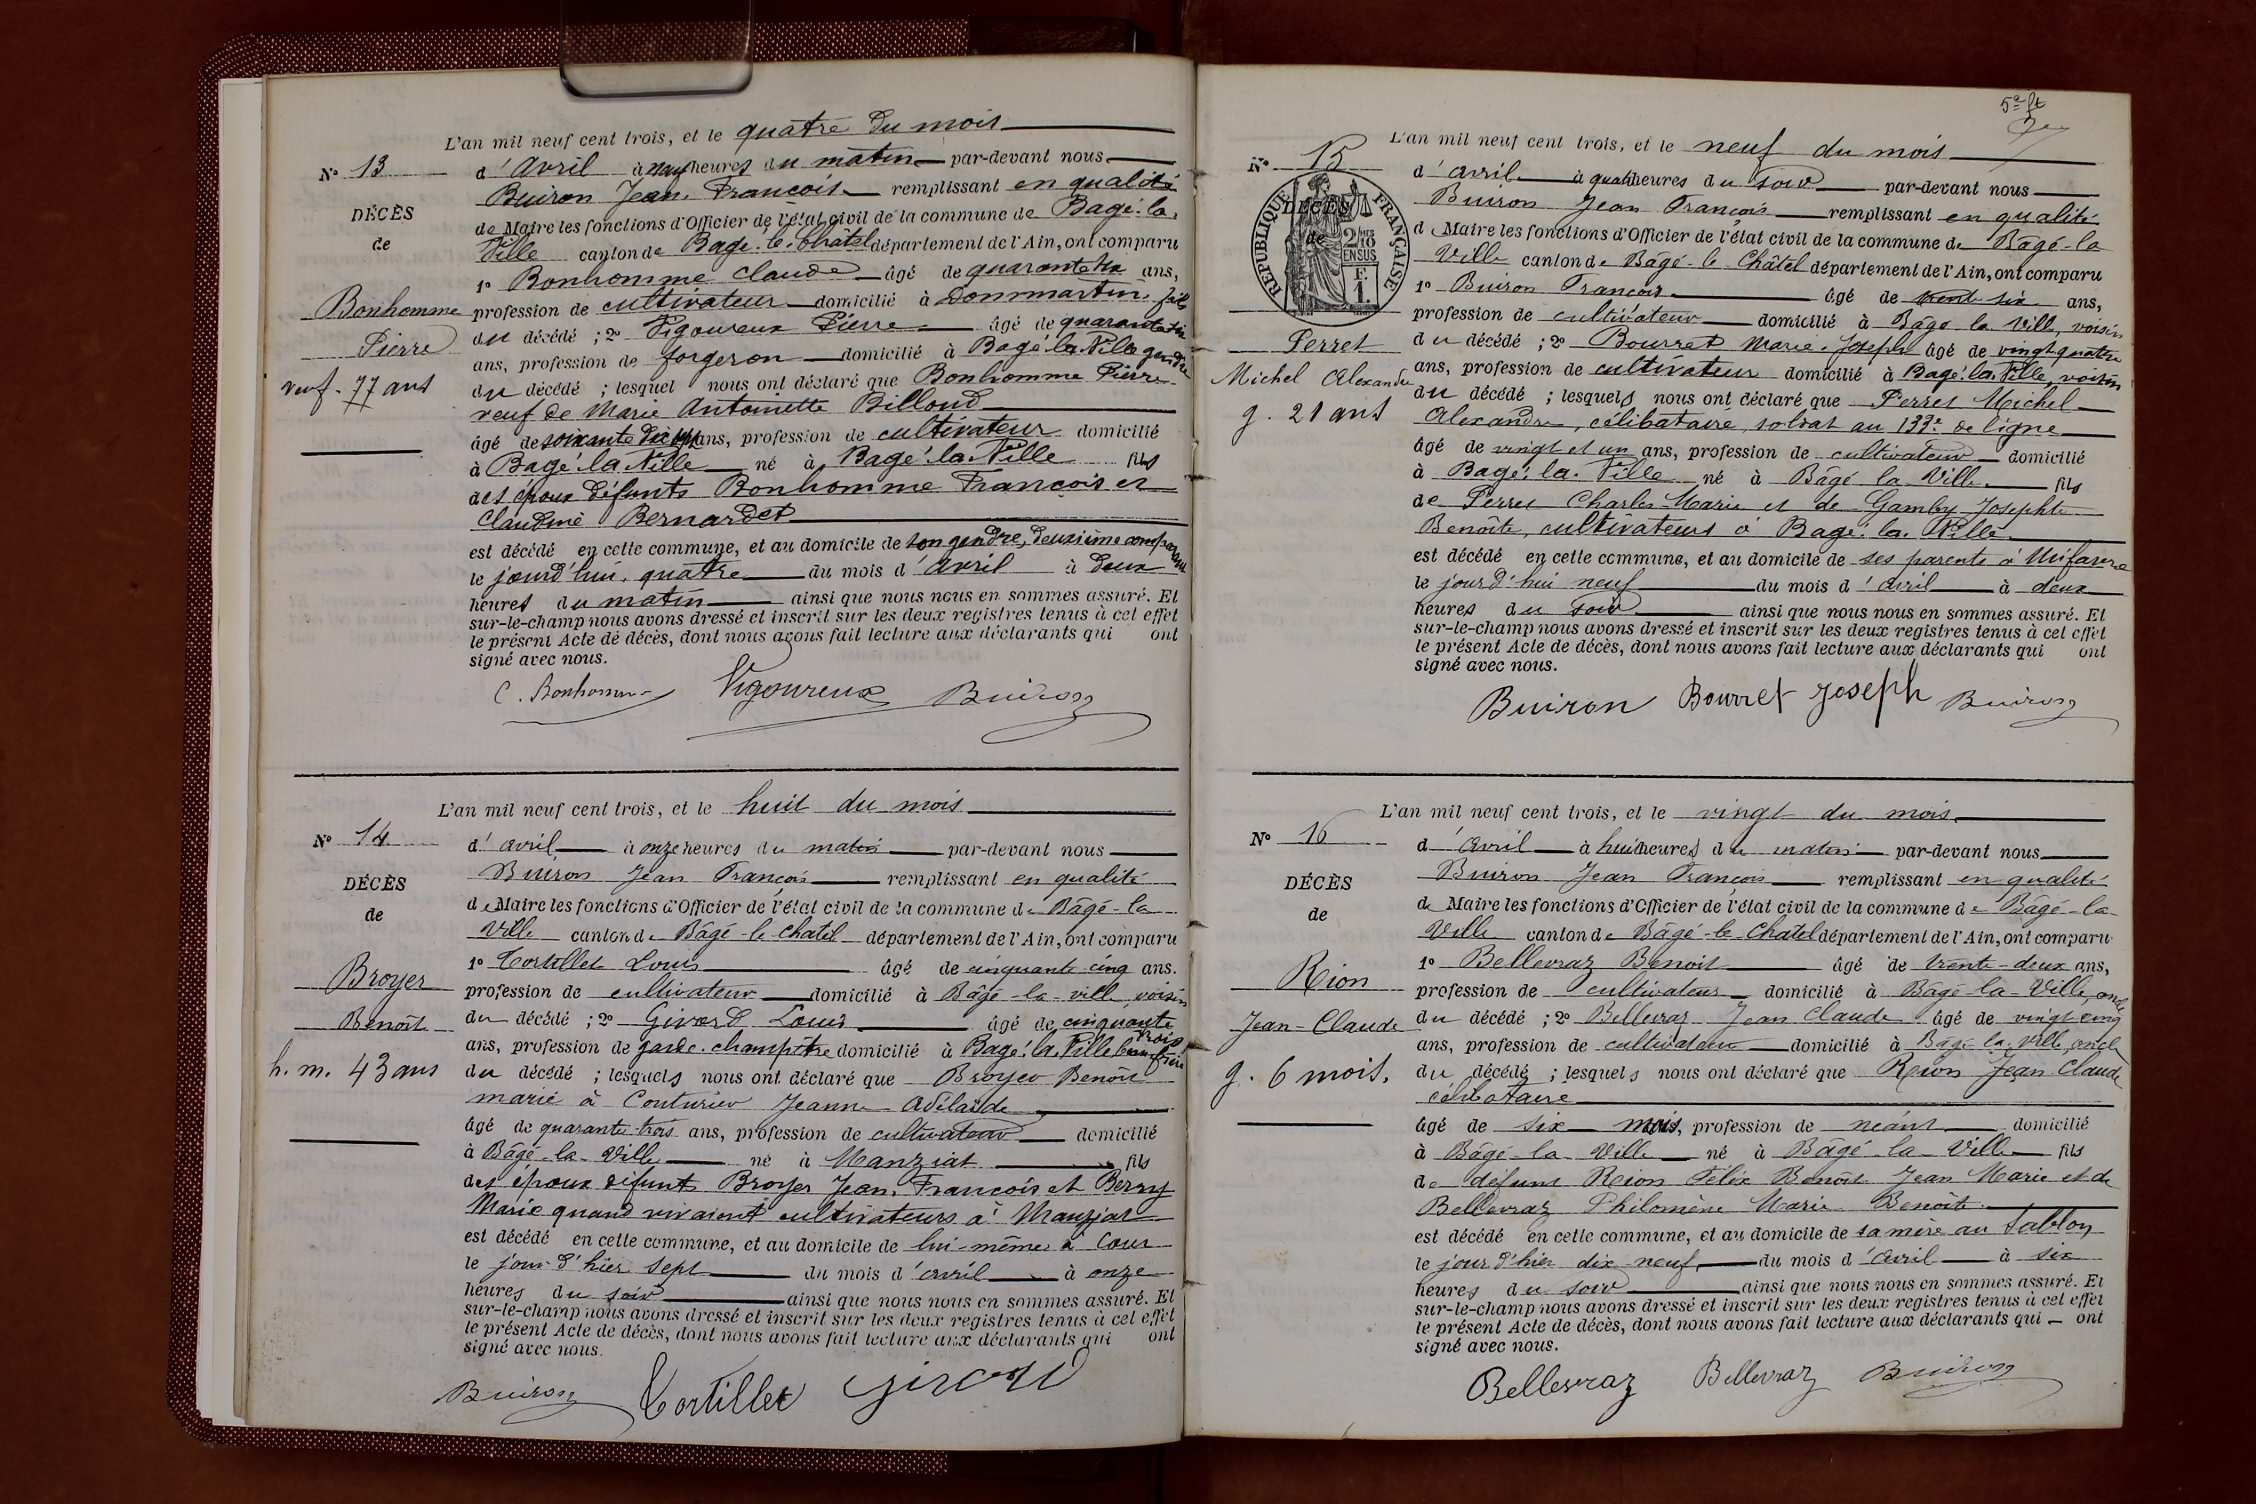 L'an mil neuf cent trois, et le quatre du mois
N° 13
d'avril à neuf heures du matin par-devant nous
Buiron Jean François remplissant en qualité
DÉCÈS
de Maire les fonctions d'Officier de l'état civil de la commune de Bagé-la-
de
Ville canton de Bagé-le-Châtel département de l'Ain, ont comparu
1° Bonhomme Claude âgé de quarante ans,
Bonhomme
profession de cultivateur domicilié à Dommartin, fils
Pierre
du décédé ; 2° Vigoureux Pierre âgé de quarante
ans, profession de forgeron domicilié à Bagé-la-Ville gendre
veuf. 77 ans
du décédé ; lesquel nous ont déclaré que Bonhomme Pierre
veuf de Marie Antoinette Billoud
âgé de soixante dix sept ans, profession de cultivateur domicilié
à Bagé-la-Ville né à Bagé-la-Ville fils
des époux défunts Bonhomme François et
Claudine Bernardet
est décédé en cette commune, et au domicile de son gendre, deuxième comparant
le jourd'hui, quatre du mois d'avril à deux
heures du matin ainsi que nous nous en sommes assuré. Et
sur-le-champ nous avons dressé et inscrit sur les deux registres tenus à cet effet
le présent Acte de décès, dont nous avons fait lecture aux déclarants qui ont
signé avec nous.
C. Bonhomme Vigoureux Buiron
L'an mil neuf cent trois, et le huit du mois
N° 14
d'avril à onze heures du matin par-devant nous
Buiron Jean François remplissant en qualité
DÉCÈS
de Maire les fonctions d'Officier de l'état civil de la commune de Bâgé-la-
de
Ville canton de Bâgé-le-Chatel département de l'Ain, ont comparu
1° Tortillet Louis âgé de cinquante cinq ans.
Broyer
profession de cultivateur domicilié à Bâgé-la-ville, voisin
Benoit
du décédé ; 2° Girard Louis âgé de cinquante
trois
ans, profession de garde-champêtre domicilié à Bagé-la-Ville beau frère
h. m. 43 ans
du décédé ; lesquels nous ont déclaré que Broyer Benoit
marié à Couturier Jeanne Adélaïde
âgé de quarante-trois ans, profession de cultivateur domicilié
à Bâgé-la-Ville né à Manziat fils
des époux défunts Broyer Jean, François et Berry
Marie quand vivaient cultivateurs à Manziat
est décédé en cette commune, et au domicile de lui-même à Cour
le jour d'hier sept du mois d'avril à onze
heures du soir ainsi que nous nous en sommes assuré. Et
sur-le-champ nous avons dressé et inscrit sur les deux registres tenus à cet effet
le présent Acte de décès, dont nous avons fait lecture aux déclarants qui ont
signé avec nous.
Buiron Tortillet Girard
5e ft
L'an mil neuf cent trois, et le neuf du mois
N° 15
d'avril à quatre heures du soir par-devant nous
Buiron Jean François remplissant en qualité
RÉPUBLIQUE FRANÇAISE
DÉCÈS
de
2/10 EN SUS
F. 1.
de Maire les fonctions d'Officier de l'état civil de la commune de Bâgé-la
Ville canton de Bâgé-le Châtel département de l'Ain, ont comparu
1° Buiron François âgé de trente six ans,
profession de cultivateur domicilié à Bâgé la Ville, voisin
Perret
du décédé ; 2° Bourret Marie-Joseph âgé de vingt quatre
Michel Alexandre
ans, profession de cultivateur domicilié à Bagé-la-Ville, voisin
du décédé ; lesquels nous ont déclaré que Perret Michel
g. 21 ans
Alexandre, célibataire, soldat au 133e de ligne
âgé de vingt et un ans, profession de cultivateur domicilié
à Bagé-la-Ville né à Bâgé la Ville fils
de Perret Charles-Marie et de Gamby Josephte
Benoîte, cultivateurs à Bagé-la-Ville
est décédé en cette commune, et au domicile de ses parents à
le jourd'hui neuf du mois d'avril à deux
heures du soir ainsi que nous nous en sommes assuré. Et
sur-le-champ nous avons dressé et inscrit sur les deux registres tenus à cet effet
le présent Acte de décès, dont nous avons fait lecture aux déclarants qui ont
signé avec nous.
Buiron Bourret Joseph Buiron
L'an mil neuf cent trois, et le vingt du mois
N° 16
d'avril à huit heures du matin par-devant nous
Buiron Jean François remplissant en qualité
DÉCÈS
de Maire les fonctions d'Officier de l'état civil de la commune de Bâgé-la-
de
Ville canton de Bâgé-le Chatel département de l'Ain, ont comparu
1° Bellevraz Benoit âgé de trente-deux ans,
Rion
profession de cultivateur domicilié à Bâgé-la-Ville, oncle
Jean-Claude
du décédé ; 2° Bellevraz Jean Claude âgé de vingt cinq
ans, profession de cultivateur domicilié à Bâgé la Ville, oncle
g. 6 mois.
du décédé ; lesquels nous ont déclaré que Rion Jean Claude
célibataire
âgé de six mois, profession de néant domicilié
à Bâgé-la-Ville né à Bâgé-la-Ville fils
de défunt Rion Félix Benoit Jean Marie et de
Bellevraz Philomène Marie Benoîte
est décédé en cette commune, et au domicile de sa mère au Sablon
le jour d'hier dix-neuf du mois d'avril à six
heures du soir ainsi que nous nous en sommes assuré. Et
sur-le-champ nous avons dressé et inscrit sur les deux registres tenus à cet effet
le présent Acte de décès, dont nous avons fait lecture aux déclarants qui ont
signé avec nous.
Bellevraz Bellevraz Buiron